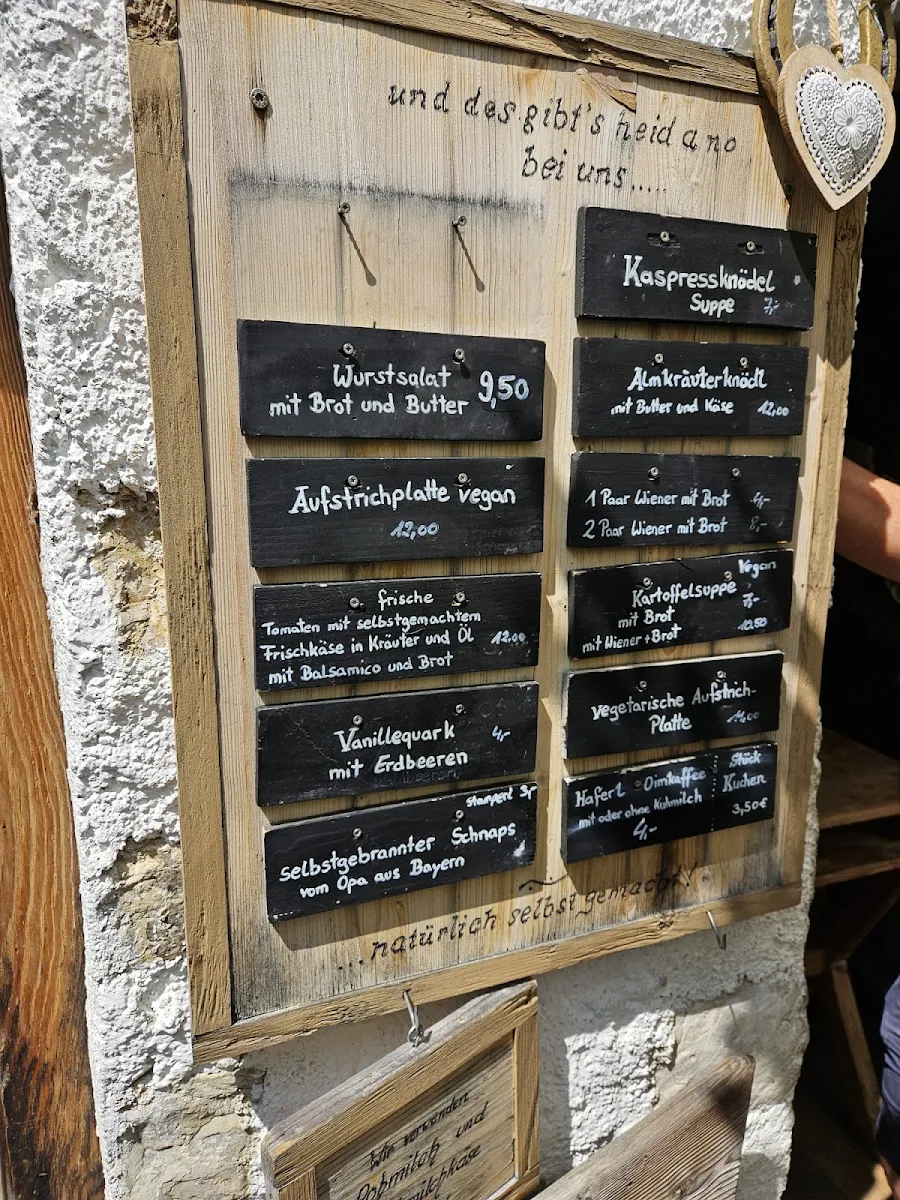 und des gibt's heid a no
bei uns.....
Kaspressknödel
Suppe 7,-
Wurstsalat 9,50
mit Brot und Butter
Almkräuterknödl
mit Butter und Käse 12,00
Aufstrichplatte vegan
12,00
1 Paar Wiener mit Brot 4,-
2 Paar Wiener mit Brot 8,-
frische
Tomaten mit selbstgemachtem
Frischkäse in Kräuter und Öl 12,00
mit Balsamico und Brot
Vegan
Kartoffelsuppe
mit Brot 7,-
mit Wiener + Brot 10.50
Vanillequark 4,-
mit Erdbeeren
vegetarische Aufstrich-
Platte
Stamperl
selbstgebrannter Schnaps
vom Opa aus Bayern
Haferl Oimkaffee
mit oder ohne Kuhmilch
4,-
Stück
Kuchen
3,50€
...natürlich selbst gemacht!
Wir verwenden
und